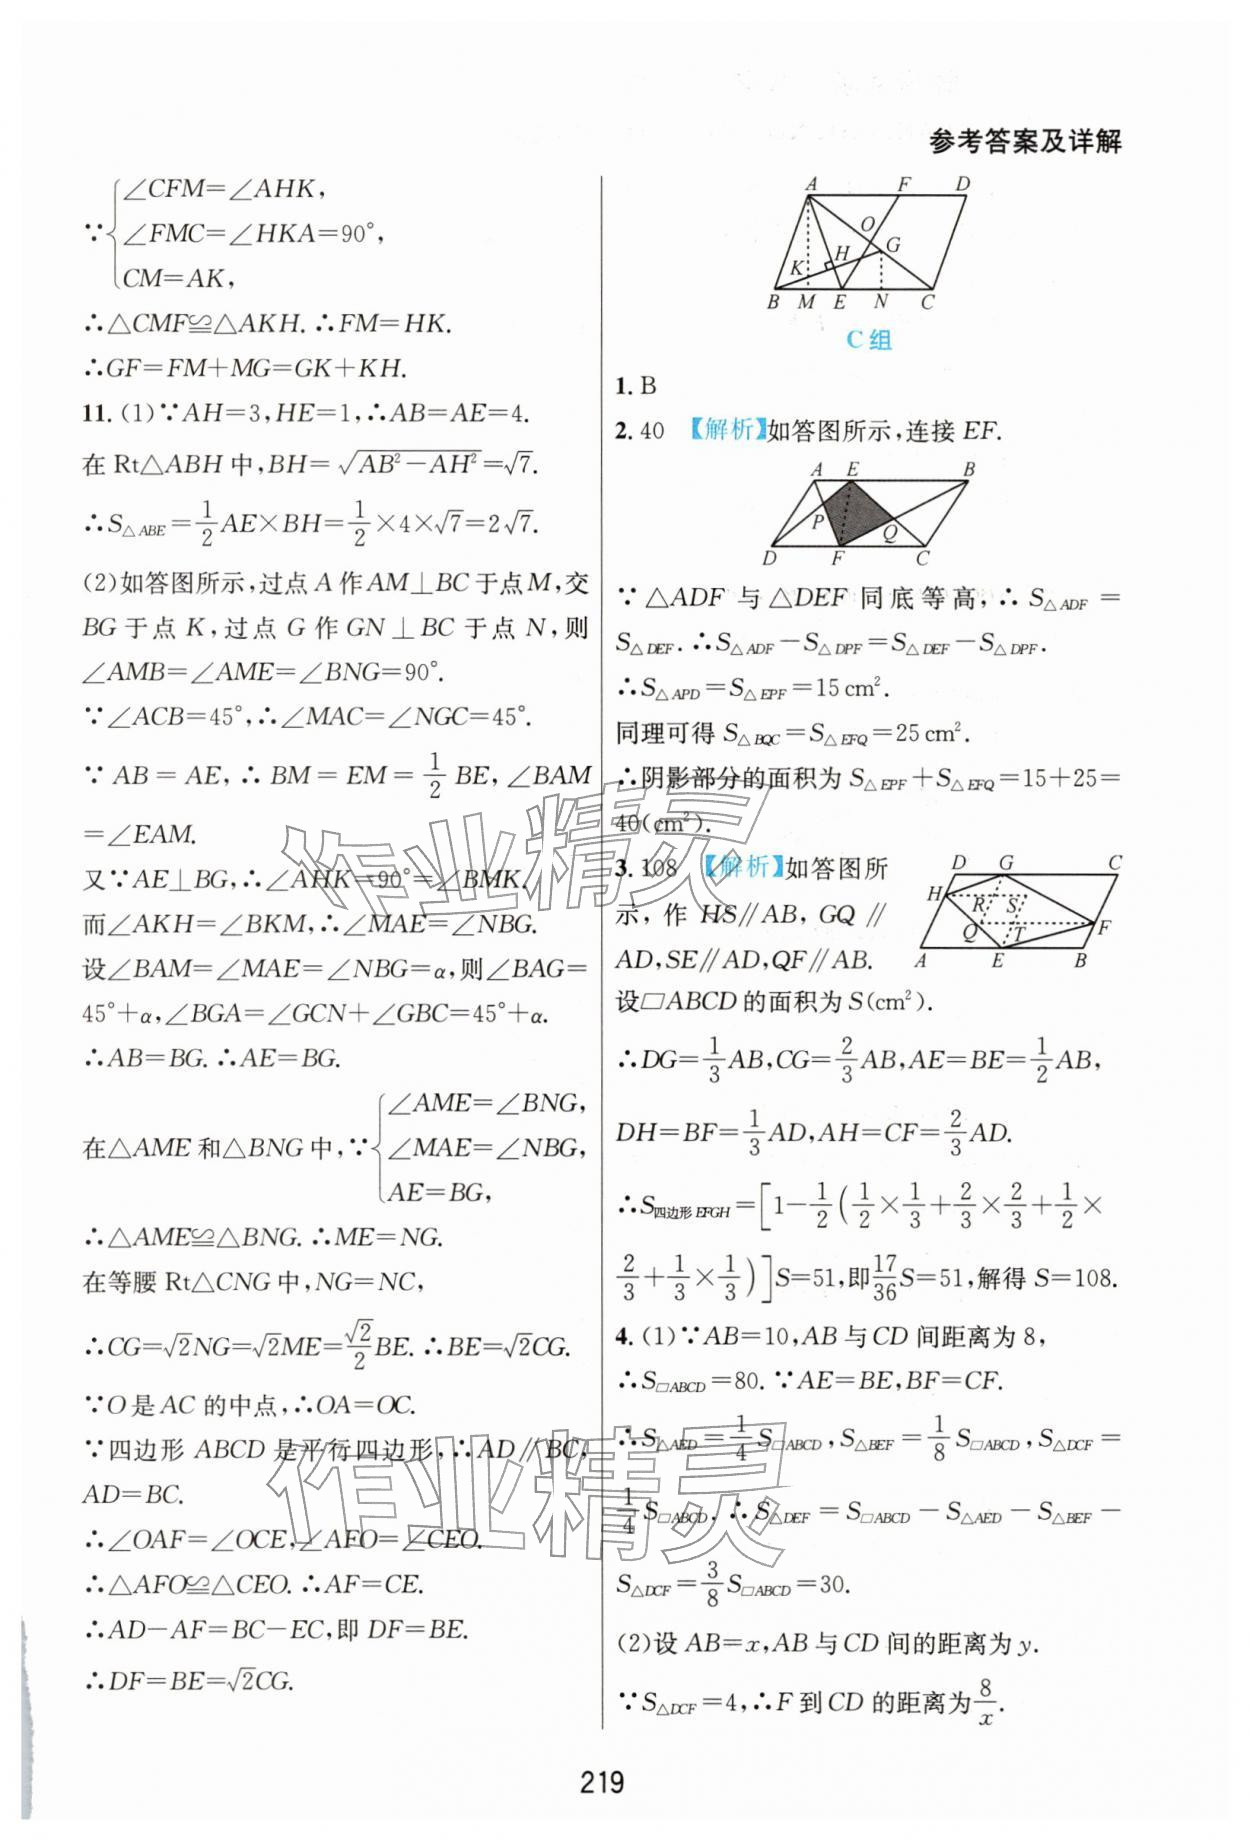 参考答案及详解
∵{∠CFM=∠AHK,
∠FMC=∠HKA=90°,
CM=AK,
∴△CMF≌△AKH. ∴FM=HK.
∴GF=FM+MG=GK+KH.
11. (1)∵AH=3,HE=1,∴AB=AE=4.
在 Rt△ABH 中,BH=√(AB²-AH²)=√7.
∴S△ABE=1/2 AE×BH=1/2×4×√7=2√7.
(2)如答图所示,过点 A 作 AM⊥BC 于点 M,交
BG 于点 K,过点 G 作 GN⊥BC 于点 N,则
∠AMB=∠AME=∠BNG=90°.
∵∠ACB=45°,∴∠MAC=∠NGC=45°.
∵AB=AE,∴BM=EM=1/2 BE,∠BAM
=∠EAM.
又∵AE⊥BG,∴∠AHK=90°=∠BMK.
而∠AKH=∠BKM,∴∠MAE=∠NBG.
设∠BAM=∠MAE=∠NBG=α,则∠BAG=
45°+α,∠BGA=∠GCN+∠GBC=45°+α.
∴AB=BG. ∴AE=BG.
在△AME 和△BNG 中,∵{∠AME=∠BNG,
∠MAE=∠NBG,
AE=BG,
∴△AME≌△BNG. ∴ME=NG.
在等腰 Rt△CNG 中,NG=NC,
∴CG=√2NG=√2ME=√2/2 BE. ∴BE=√2CG.
∵O 是 AC 的中点,∴OA=OC.
∵四边形 ABCD 是平行四边形,∴AD∥BC,
AD=BC.
∴∠OAF=∠OCE,∠AFO=∠CEO.
∴△AFO≌△CEO. ∴AF=CE.
∴AD-AF=BC-EC,即 DF=BE.
∴DF=BE=√2CG.
A F D
O
G
H
K
B M E N C
C 组
1. B
2. 40 【解析】如答图所示,连接 EF.
A E B
P
Q
D F C
∵△ADF 与△DEF 同底等高,∴S△ADF=
S△DEF. ∴S△ADF-S△DPF=S△DEF-S△DPF.
∴S△APD=S△EPF=15 cm².
同理可得 S△BQC=S△EFQ=25 cm².
∴阴影部分的面积为 S△EPF+S△EFQ=15+25=
40(cm²).
3. 108 【解析】如答图所
示,作 HS∥AB,GQ∥
AD,SE∥AD,QF∥AB.
D G C
H
R S
Q T F
A E B
设□ABCD 的面积为 S(cm²).
∴DG=1/3 AB,CG=2/3 AB,AE=BE=1/2 AB,
DH=BF=1/3 AD,AH=CF=2/3 AD.
∴S四边形EFGH=[1-1/2(1/2×1/3+2/3×2/3+1/2×
2/3+1/3×1/3)]S=51,即17/36 S=51,解得 S=108.
4. (1)∵AB=10,AB 与 CD 间距离为 8,
∴S□ABCD=80. ∵AE=BE,BF=CF.
∴S△AED=1/4 S□ABCD,S△BEF=1/8 S□ABCD,S△DCF=
1/4 S□ABCD,∴S△DEF=S□ABCD-S△AED-S△BEF-
S△DCF=3/8 S□ABCD=30.
(2)设 AB=x,AB 与 CD 间的距离为 y.
∵S△DCF=4,∴F 到 CD 的距离为8/x.
219
作业精灵
作业精灵